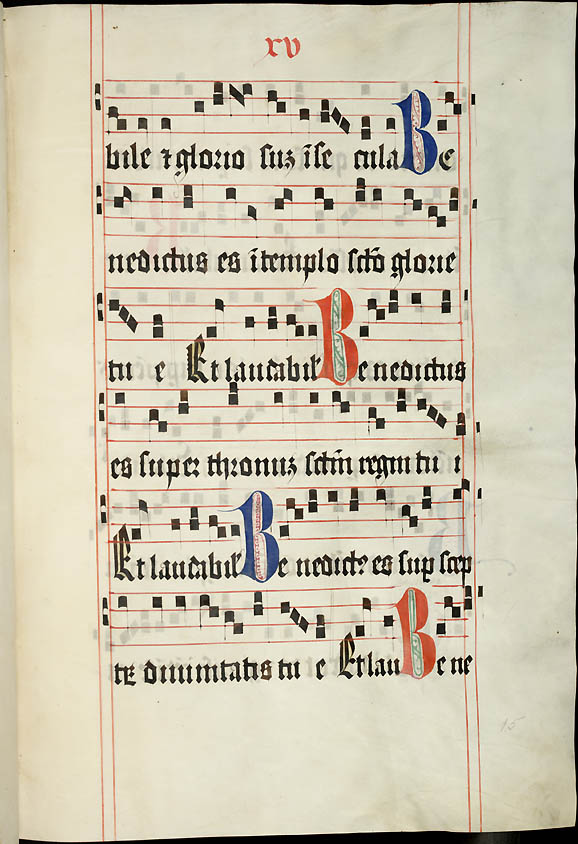 xv
bile ⁊ glorio suʒ ī se cula Be
nedictus es ī templo sctō glorie
tu e Et laudabil' Be nedictus
es super thronuʒ sctm̄ regni tu i
Et laudabil' Be nedictꝰ es sup scep
tr divinitatis tu e Et lau Be ne
15